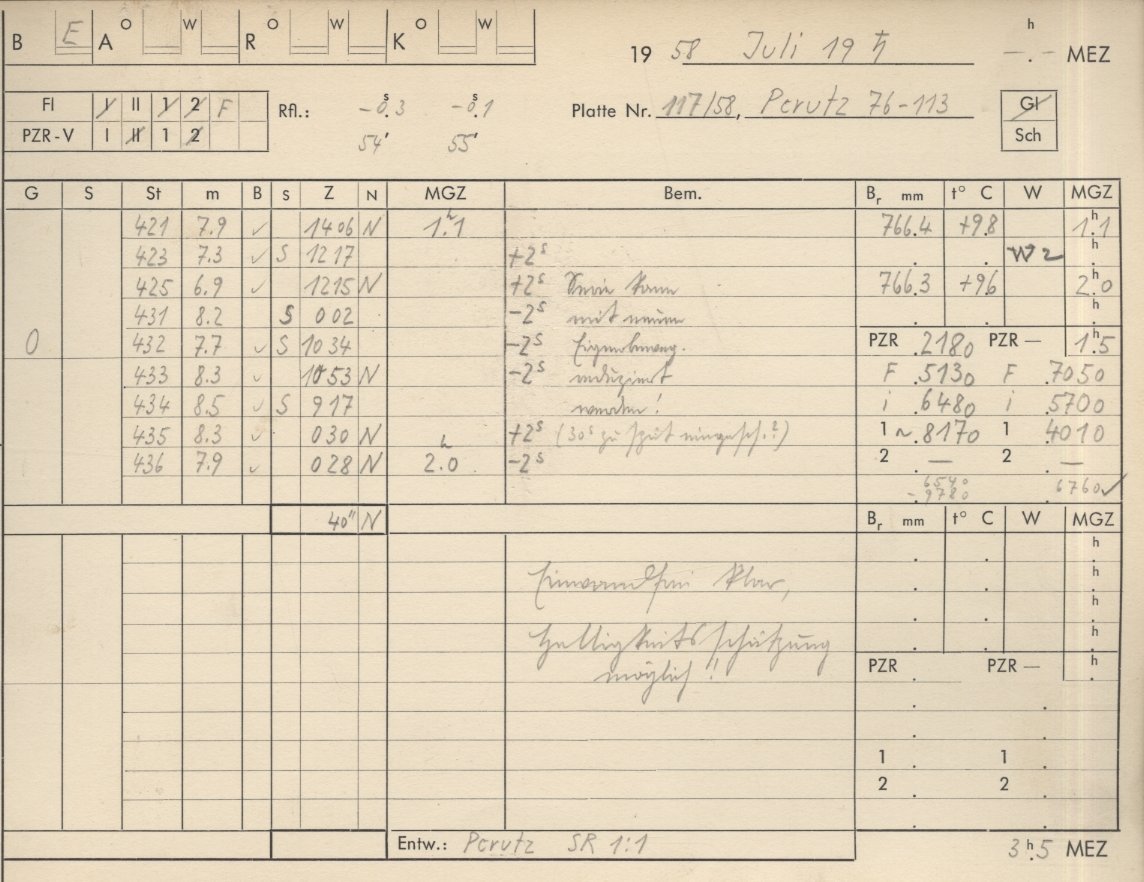 B E A O W R O W K O W
19 58 Juli 19 ♄ h —.— MEZ
FI I II 1 2 F Rfl.: -0.ˢ3 -0.ˢ1 Platte Nr. 117/58, Perutz 76-113 Gl
PZR-V I II 1 2 54' 55' Sch
G S St m B S Z N MGZ Bem. Bᵣ mm t° C W MGZ
421 7.9 ✓ 1406 N 1.ʰ1 766.4 +9.8 1.ʰ1
423 7.3 ✓ S 1217 +2ˢ W2 h
425 6.9 ✓ 1215 N +2ˢ Serie kann 766.3 +9.6 2.ʰ0
431 8.2 S 002 -2ˢ mit neuen h
0 432 7.7 ✓ S 1034 -2ˢ Eigenbeweg. PZR .2180 PZR — 1.5
433 8.3 ✓ 1053 N -2ˢ reduziert F .5130 F .7050
434 8.5 ✓ S 917 werden! i .6480 i .5700
435 8.3 ✓ 030 N +2ˢ (30ˢ zu spät eingesch.?) 1 ~.8170 1 .4010
436 7.9 ✓ 028 N 2.ʰ0 -2ˢ 2 — 2 —
6540
-9780 6760✓
40" N Bᵣ mm t° C W MGZ
h
Einwandfrei klar, h
h
Helligkeitsschätzung h
möglich!! PZR PZR — h
1 1
2 2
Entw.: Perutz SR 1:1 3.ʰ5 MEZ